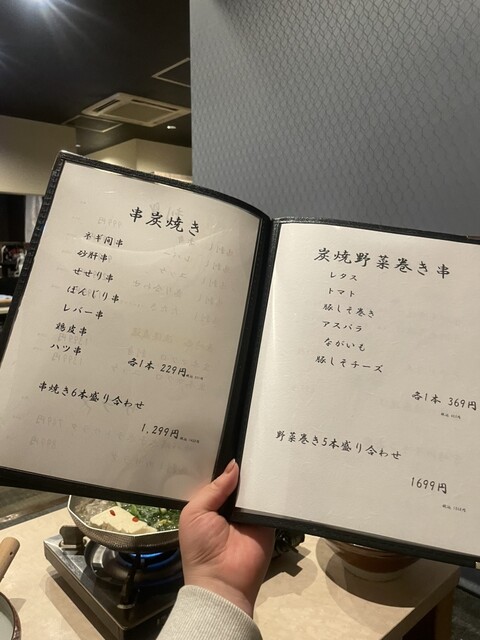 串炭焼き
ネギ間串
砂肝串
せせり串
ぼんじり串
レバー串
鶏皮串
ハツ串
各1本 229円
串焼き6本盛り合わせ
1,299円
炭焼野菜巻き串
レタス
トマト
豚しそ巻き
アスパラ
ながいも
豚しそチーズ
各1本 369円
野菜巻き5本盛り合わせ
1699円